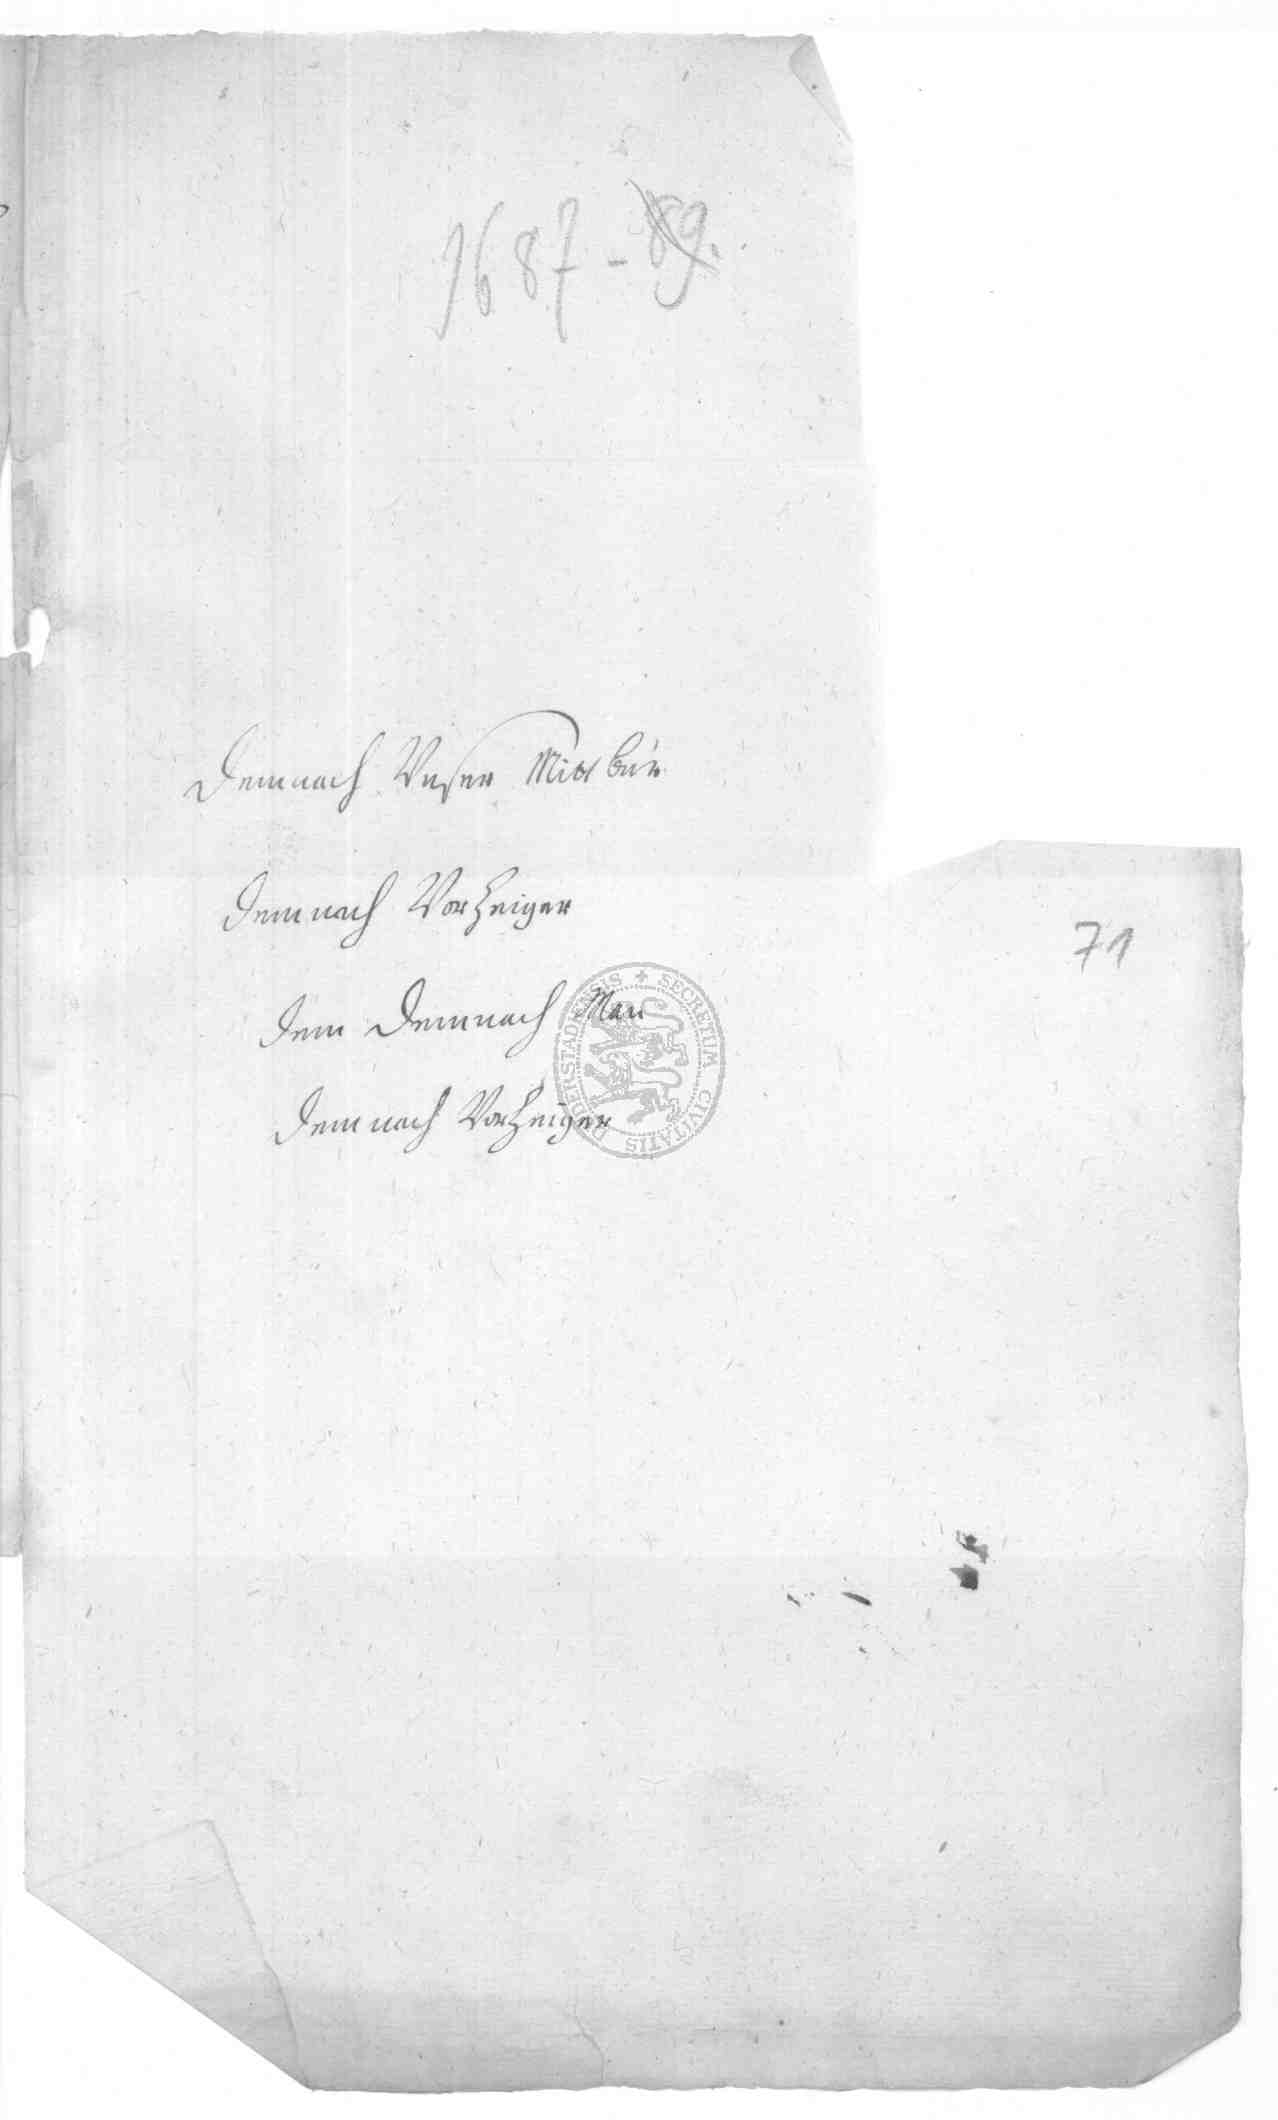 1687-89.
Demnach Unser Mitbür
Demnach Vorzeiger
71
Dem Demnach Man
Demnach Vorzeiger
SECRETUM CIVITATIS DUDERSTADIENSIS